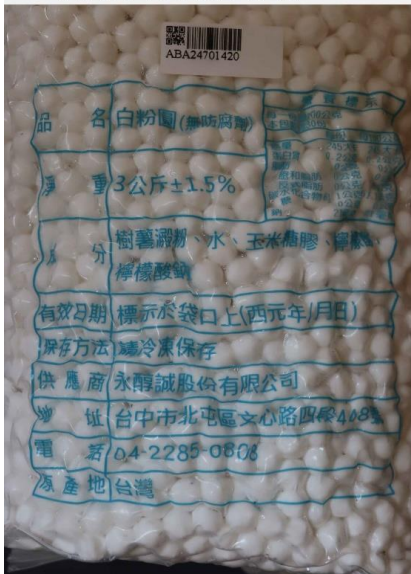 ABA24701420
營養標示
品名 白粉圓(無防腐劑)
淨重 3公斤±1.5%
成分 樹薯澱粉、水、玉米糖膠、檸檬酸、
檸檬酸鈉
有效日期 標示於袋口上(西元年/月日)
保存方法 請冷凍保存
供應商 永醇誠股份有限公司
地址 台中市北屯區文心路四段468號
電話 04-2285-0808
原產地 台灣